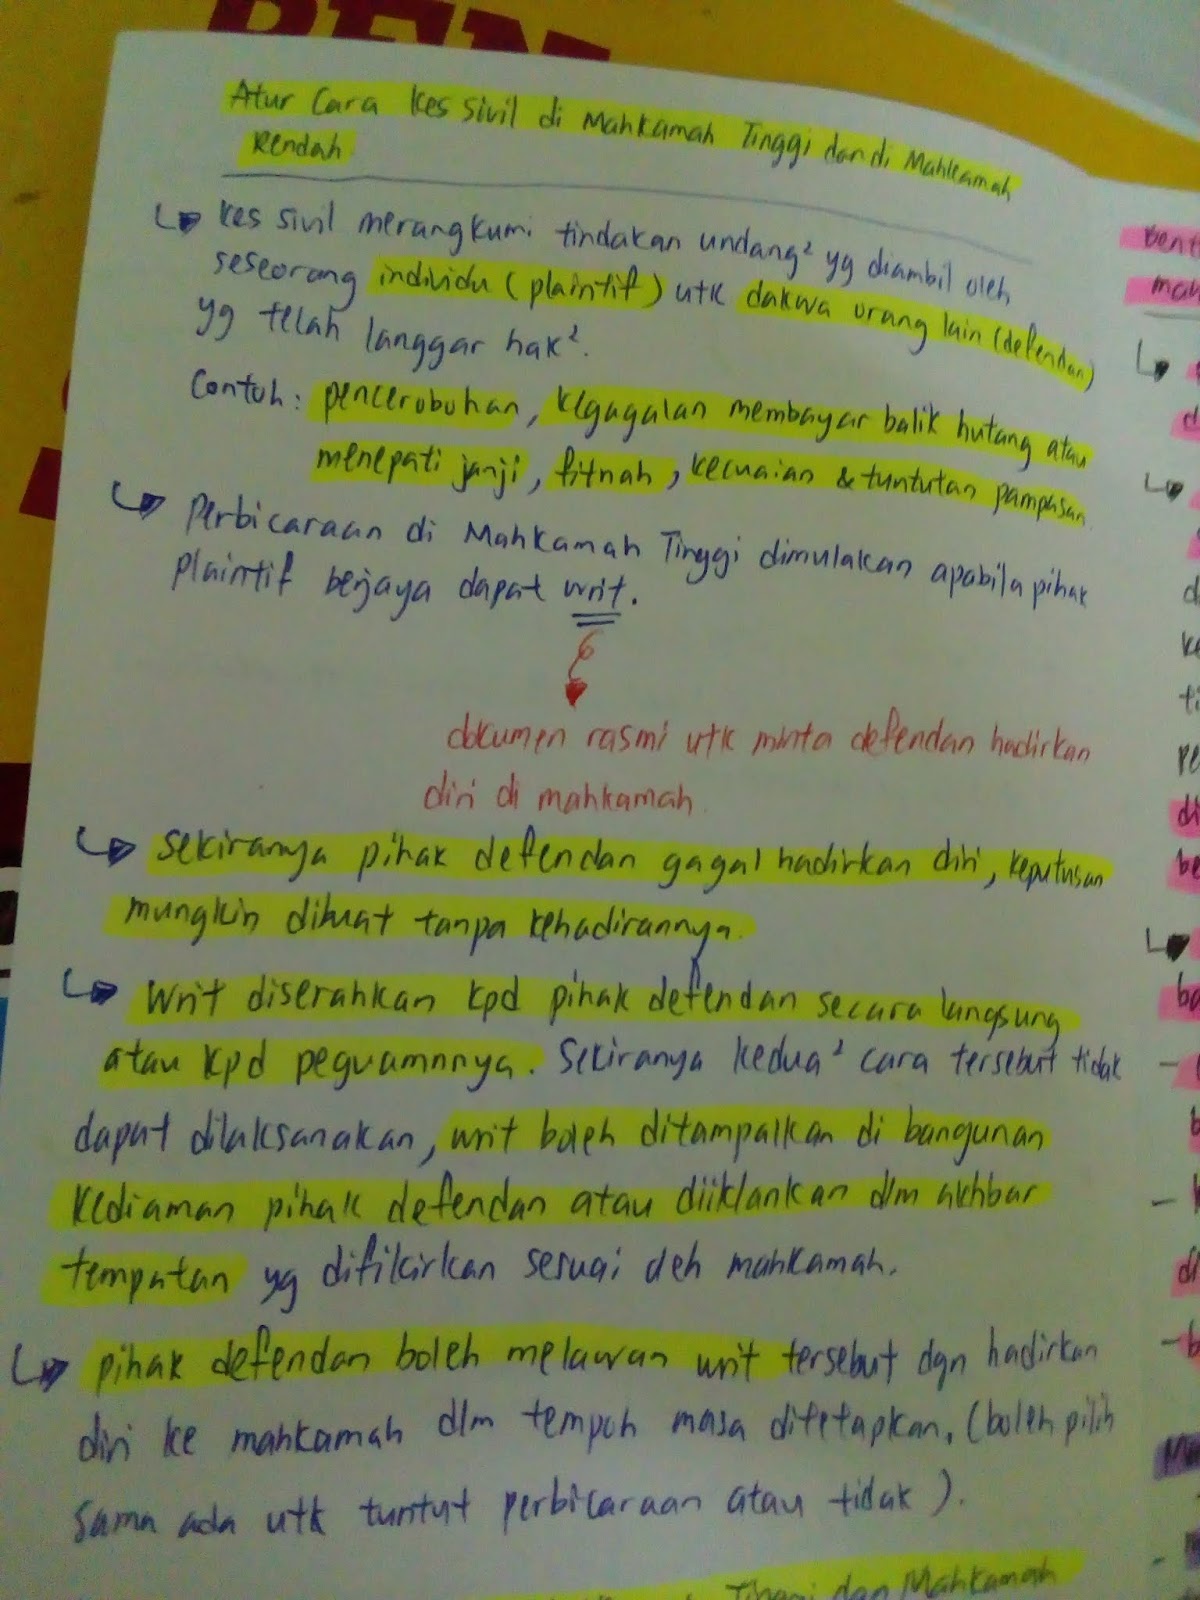 Atur Cara Kes Sivil di Mahkamah Tinggi dan di Mahkamah
Rendah
Kes sivil merangkumi tindakan undang² yg diambil oleh
seseorang individu (plaintif) utk dakwa orang lain (defendan)
yg telah langgar hak².
Contoh: pencerobohan, kegagalan membayar balik hutang atau
menepati janji, fitnah, kecuaian & tuntutan pampasan.
Perbicaraan di Mahkamah Tinggi dimulakan apabila pihak
plaintif berjaya dapat writ.
dokumen rasmi utk minta defendan hadirkan
diri di mahkamah.
Sekiranya pihak defendan gagal hadirkan diri, keputusan
mungkin dibuat tanpa kehadirannya.
Writ diserahkan kpd pihak defendan secara langsung
atau kpd peguamnnya. Sekiranya kedua² cara tersebut tidak
dapat dilaksanakan, writ boleh ditampalkan di bangunan
kediaman pihak defendan atau diiklankan dlm akhbar
tempatan yg difikirkan sesuai oleh mahkamah.
pihak defendan boleh melawan writ tersebut dgn hadirkan
diri ke mahkamah dlm tempoh masa ditetapkan. (boleh pilih
sama ada utk tuntut perbicaraan atau tidak).
Tinggi dan Mahkamah